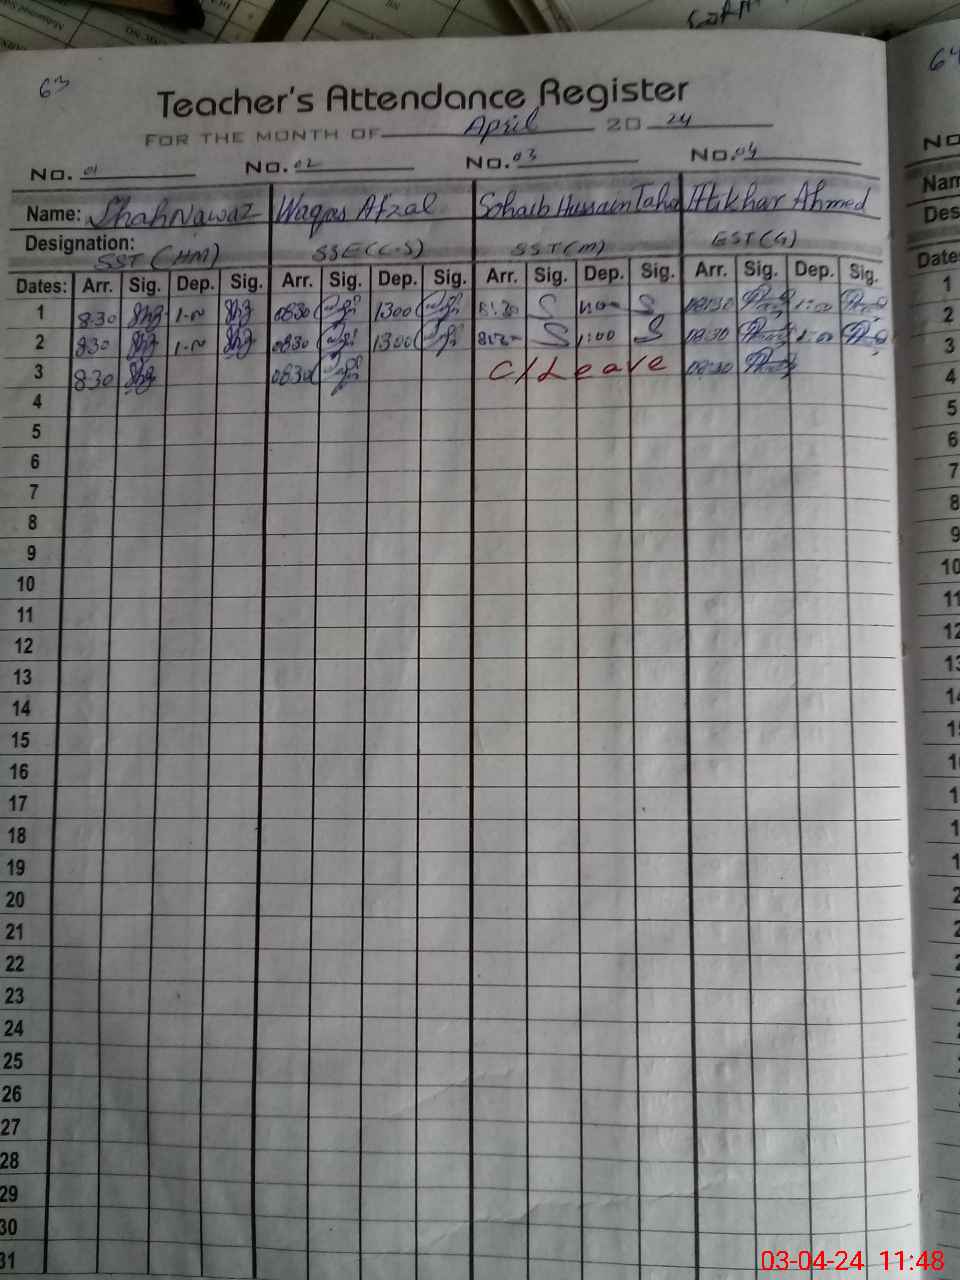 63
Teacher's Attendance Register
FOR THE MONTH OF April 20 24
No. 01 No. 02 No. 03 No. 04
Name: ShahNawaz Waqas Afzal Sohaib Hussain Taha Iftikhar Ahmed
Designation: SST (HM) SSE(C-S) SST(M) EST(G)
Dates: Arr. Sig. Dep. Sig. Arr. Sig. Dep. Sig. Arr. Sig. Dep. Sig. Arr. Sig. Dep. Sig.
1 830 Shz 1-00 Shz 0830 1300 8:30 S 1:00 S 08:30 1:00
2 830 Shz 1-00 Shz 0830 1300 8:30 S 1:00 S 08:30 1:00
3 830 Shz 0830 C/Leave 08:30
4
5
6
7
8
9
10
11
12
13
14
15
16
17
18
19
20
21
22
23
24
25
26
27
28
29
30
31
64
03-04-24 11:48